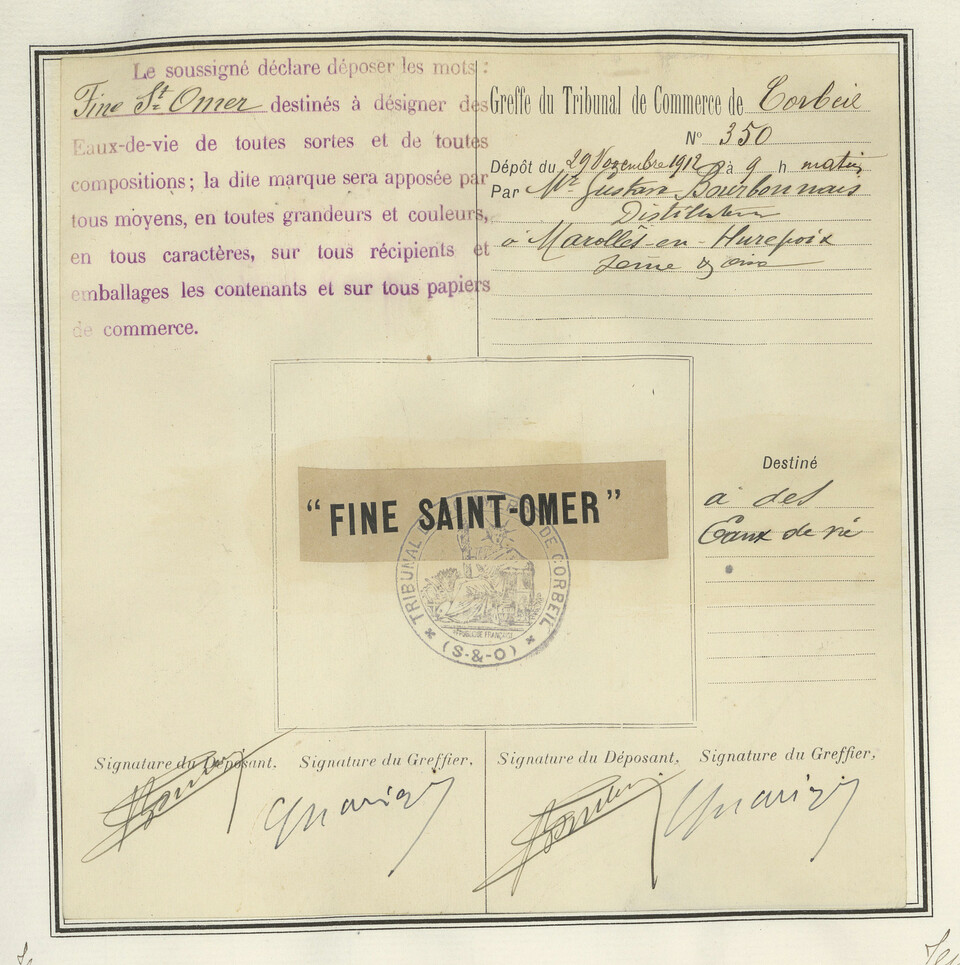 Le soussigné déclare déposer les mots :
Fine St Omer destinés à désigner des
Eaux-de-vie de toutes sortes et de toutes
compositions ; la dite marque sera apposée par
tous moyens, en toutes grandeurs et couleurs,
en tous caractères, sur tous récipients et
emballages les contenants et sur tous papiers
de commerce.
Greffe du Tribunal de Commerce de Corbeil
N° 350
Dépôt du 29 Novembre 1912 à 9 h matin
Par Mr Gustave Bourbonnais
Distillateur
à Marolles-en-Hurepoix
Seine & Oise
"FINE SAINT-OMER"
TRIBUNAL DE COMMERCE DE CORBEIL
RÉPUBLIQUE FRANÇAISE
(S-&-O)
Destiné
à des
Eaux de vie
Signature du Déposant, Signature du Greffier,
Signature du Déposant, Signature du Greffier,